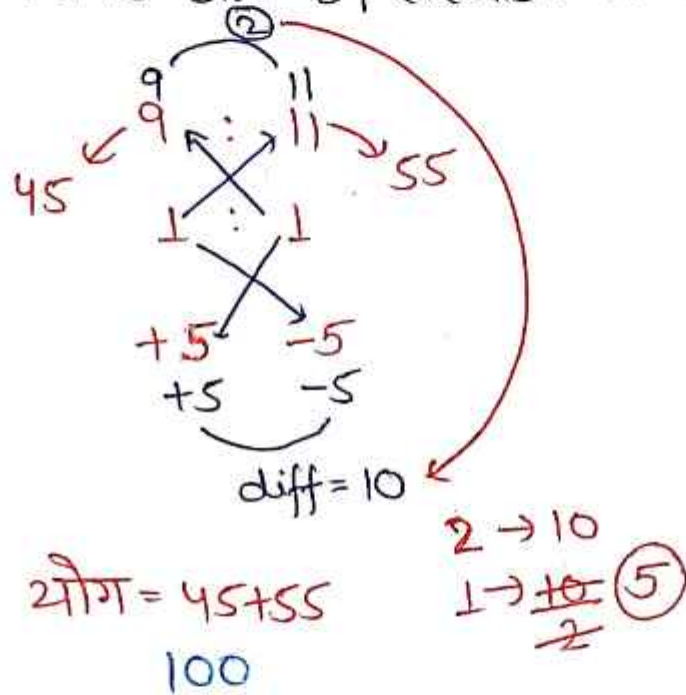 2
9 11
9 : 11
45 55
1 : 1
+5 -5
+5 -5
diff = 10
2 → 10
1 → 10/2 5
योग = 45+55
100